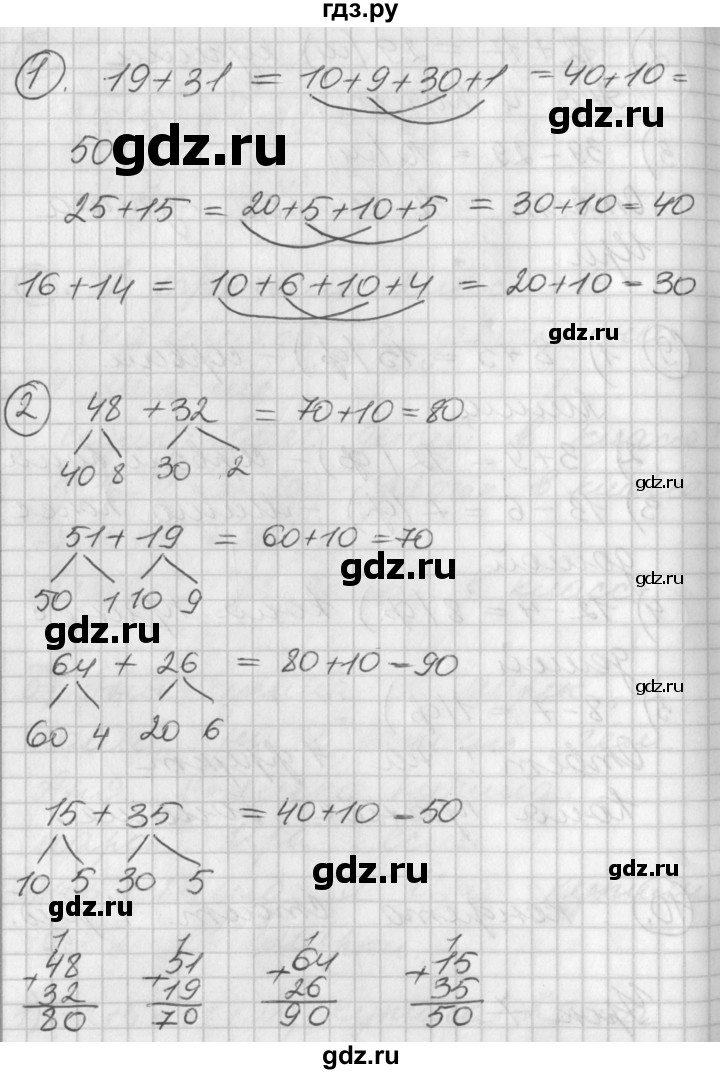 гдз.ру
1. 19+31 = 10+9+30+1 = 40+10 =
gdz.ru
50 gdz.ru
25+15 = 20+5+10+5 = 30+10 = 40
16+14 = 10+6+10+4 = 20+10 - 30
gdz.ru
2 48 + 32 = 70+10 = 80
40 8 30 2
gdz.ru
51 + 19 = 60+10 = 70
gdz.ru
gdz.ru
50 1 10 9
gdz.ru
64 + 26 = 80+10 - 90
gdz.ru
60 4 20 6
15 + 35 = 40+10 - 50
gdz.ru
gdz.ru
10 5 30 5
gdz.ru
1 1 1 1
+48 +51 +64 +15
32 19 26 35
80 70 90 50
gdz.ru